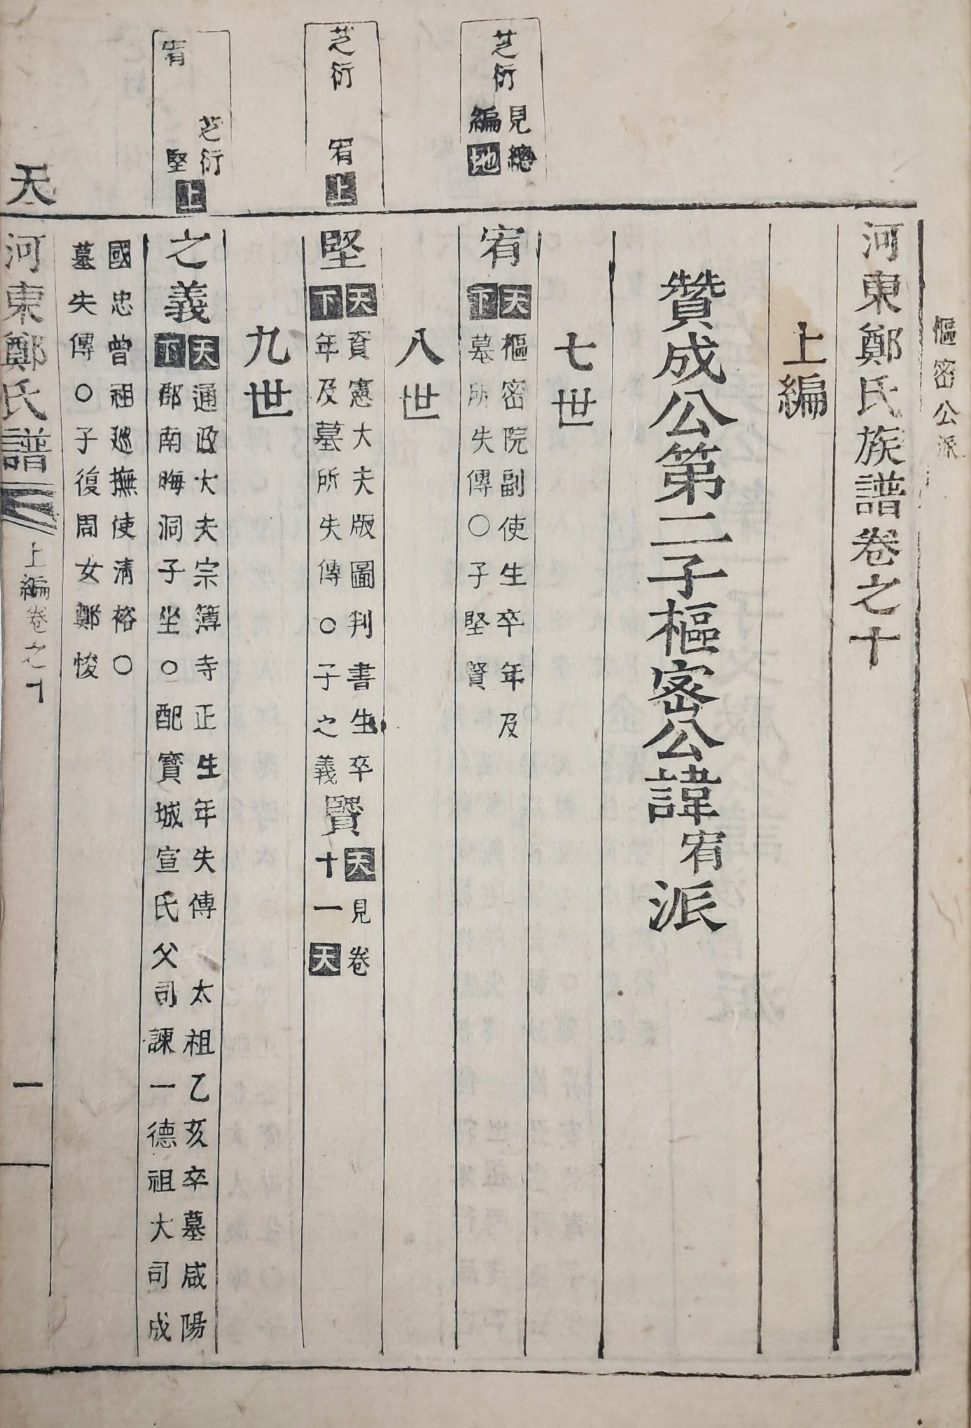 樞密公派
河東鄭氏族譜卷之十
上編
贊成公第二子樞密公諱宥派
七世
芝衍見總
編地
宥天樞密院副使生卒年及
下墓所失傳○子堅賢
八世
芝衍 宥上
堅天資憲大夫版圖判書生卒
下年及墓所失傳○子之義
賢天見卷
十一天
九世
芝衍
宥 堅上
之義天通政大夫宗簿寺正生年失傳 太祖乙亥卒墓咸陽
下郡南晦洞子坐○配寶城宣氏父司諫一德祖大司成
國忠曾祖廵撫使淸裕○
墓失傳○子復周女鄭悛
天
河東鄭氏譜
上編卷之十
一